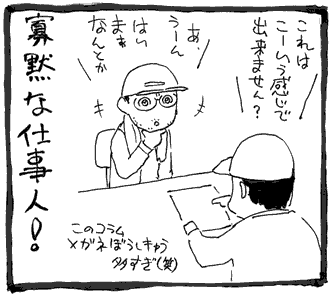 これは
こーいう感じで
出来ません?
あ、
うーん
はい
まぁ
なんとか
寡黙な仕事人!
このコラム
メガネぼうしきゃら
多すぎ(笑)